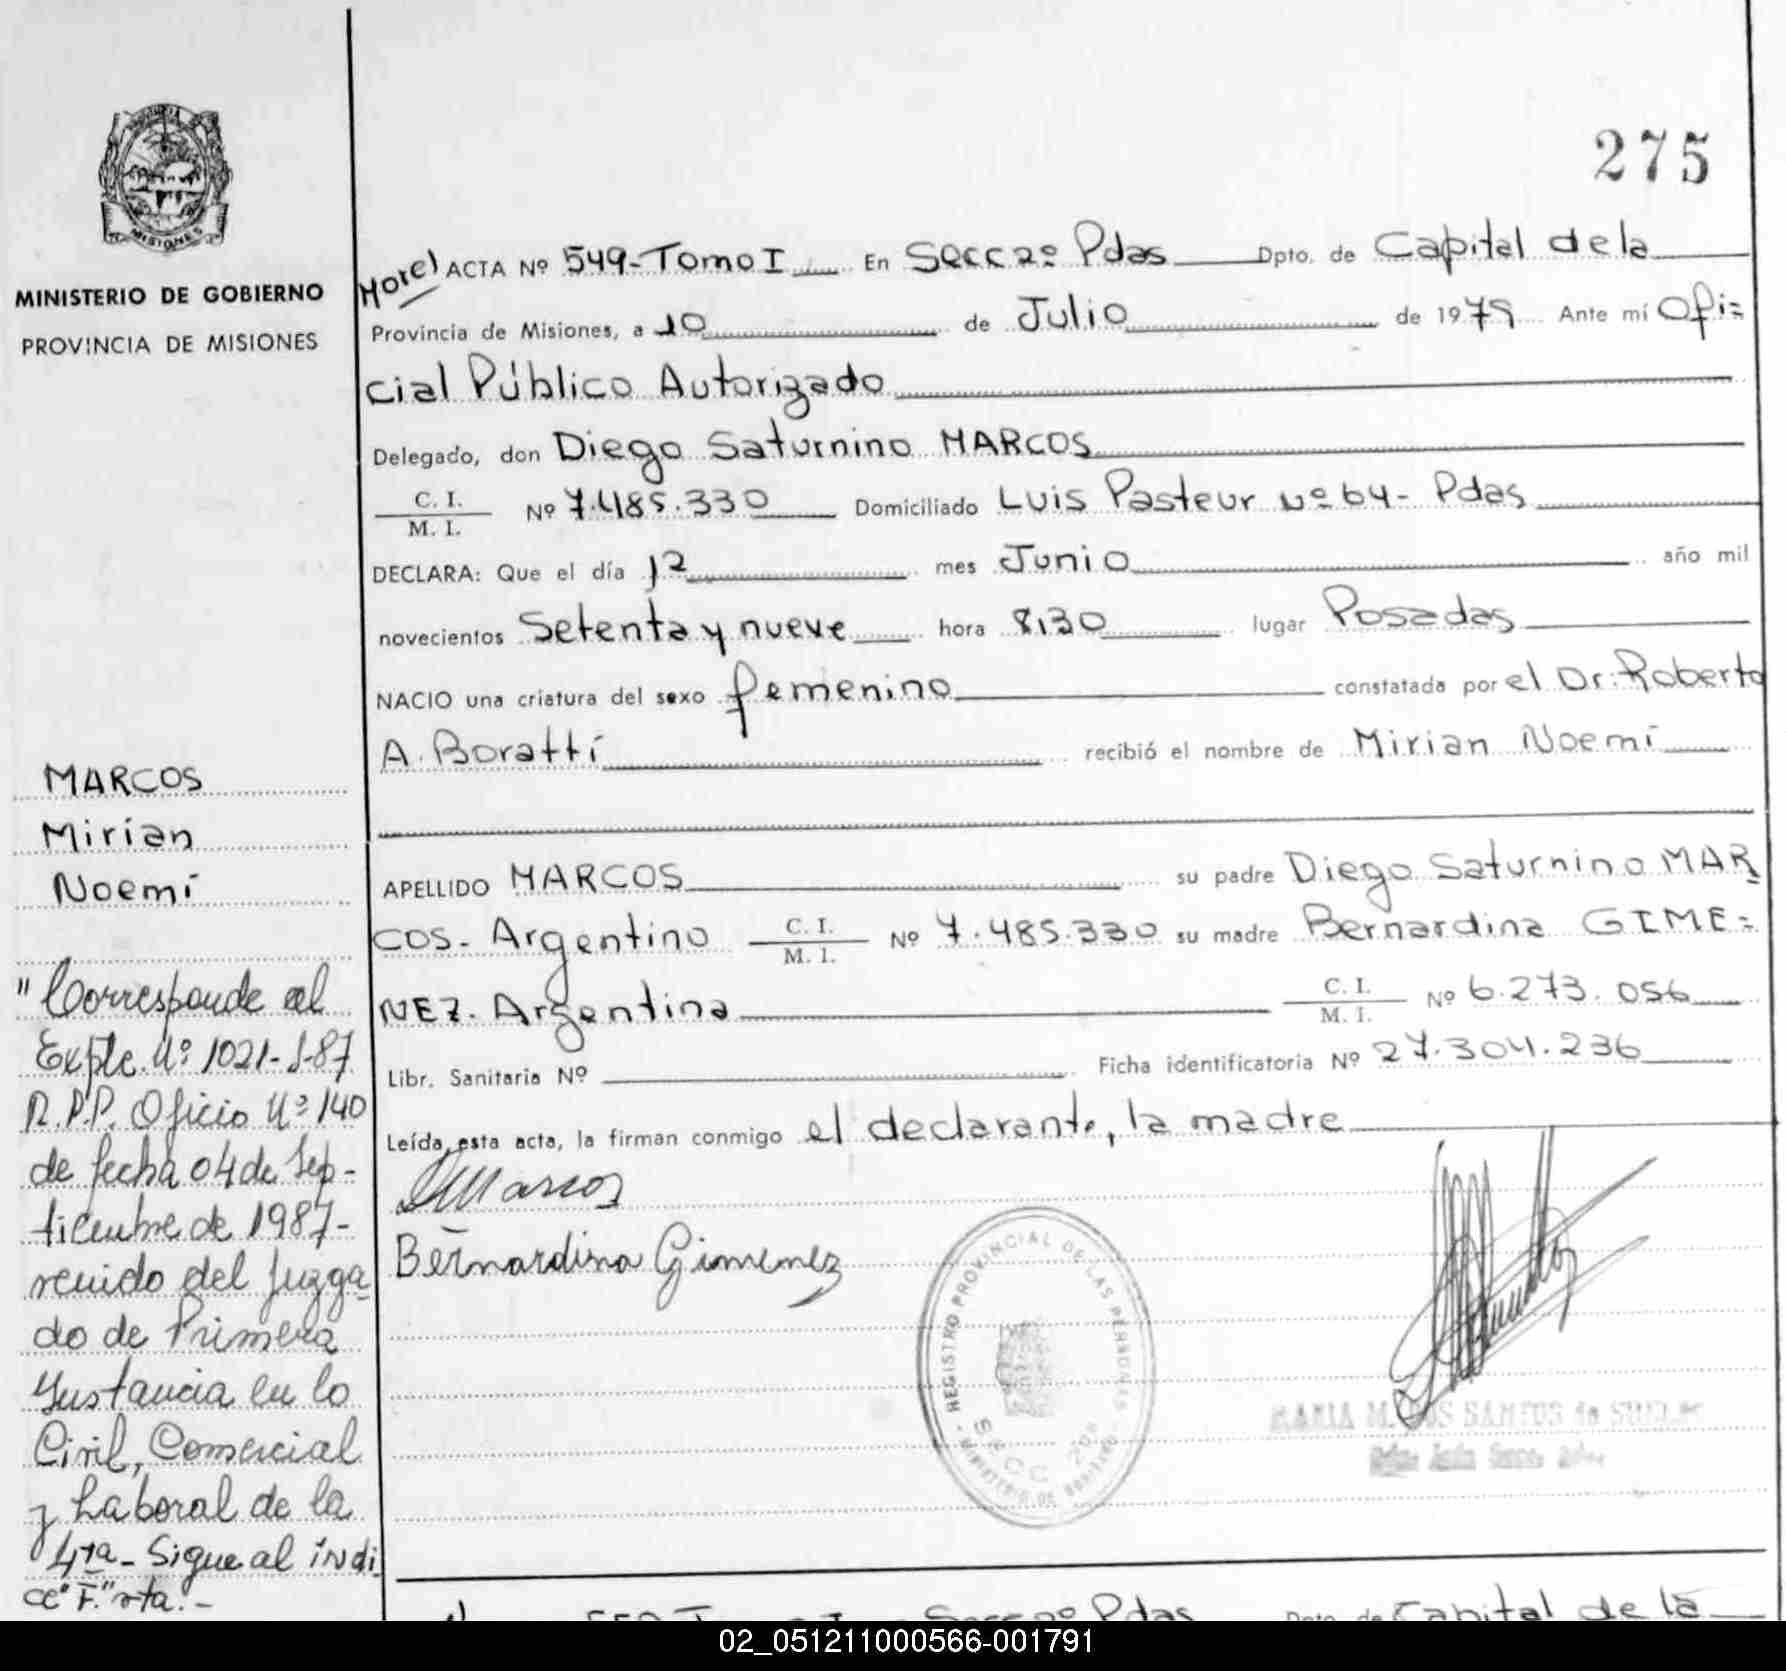 275
MISIONES
MINISTERIO DE GOBIERNO
PROVINCIA DE MISIONES
ACTA Nº 549-Tomo I En Secc 2º Pdas Dpto. de Capital de la
Provincia de Misiones, a 10 de Julio de 1979 Ante mí Ofi=
cial Público Autorizado
Delegado, don Diego Saturnino MARCOS
C. I.
M. I.
Nº 7.485.330 Domiciliado Luis Pasteur Nº 64- Pdas
DECLARA: Que el día 12 mes Junio año mil
novecientos Setenta y nueve hora 8,30 lugar Posadas
NACIO una criatura del sexo femenino constatada por el Dr: Roberto
A. Boratti recibió el nombre de Mirian Noemí
APELLIDO MARCOS su padre Diego Saturnino MAR
COS- Argentino C. I. M. I. Nº 7.485.330 su madre Bernardina GIME=
NEZ. Argentina C. I. M. I. Nº 6.273.056
Libr. Sanitaria Nº Ficha identificatoria Nº 27.304.236
Leída, esta acta, la firman conmigo el declarante, la madre
Marcos
Bernardina Gimenez
REGISTRO PROVINCIAL DE LAS PERSONAS
SECC 2DA
MINISTERIO DE GOBIERNO
MARIA M. DOS SANTOS de
MARCOS
Mirian
Noemí
"Corresponde al
Expte. Nº 1021-S-87
R.P.P. Oficio Nº 140
de fecha 04 de Sep-
tiembre de 1987-
venido del Juzga
do de Primera
Instancia en lo
Civil, Comercial
y Laboral de la
4ta- Sigue al índi
ce "F." vta.-
Tomo I Secc 2º Pdas Dpto. de Capital de la
02_051211000566-001791